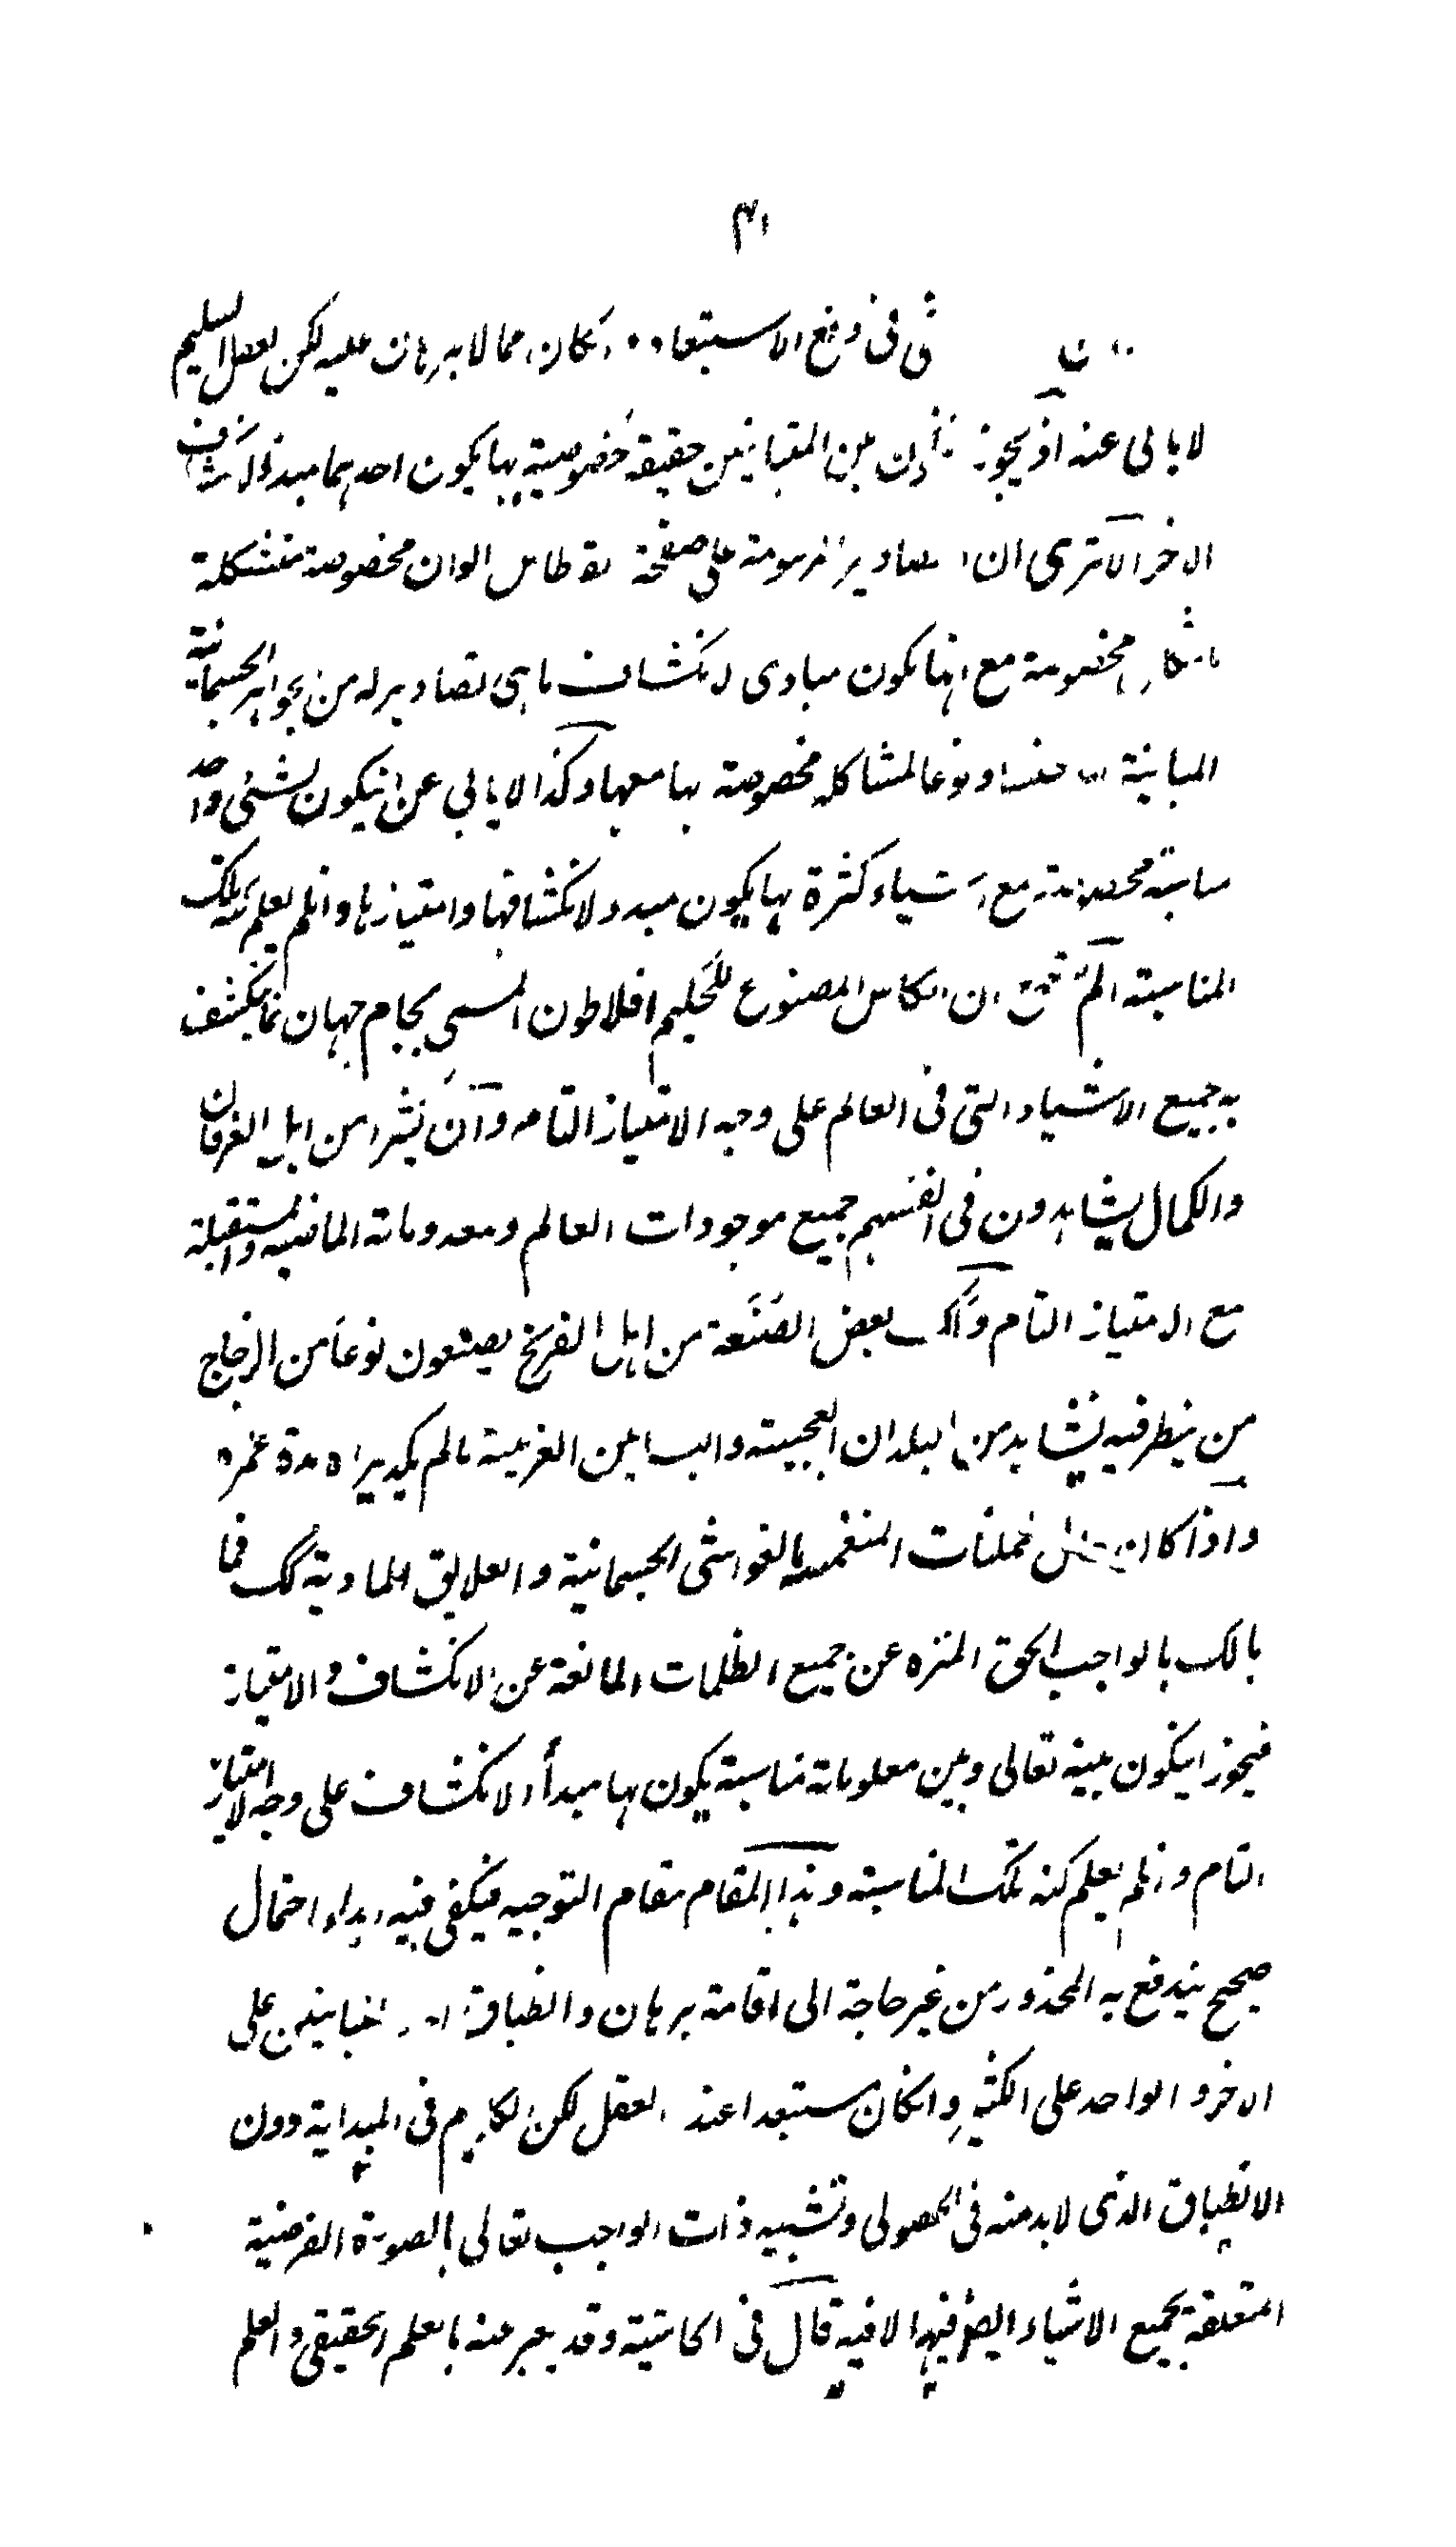 ٤١
فى دفع الاستبعاد وان كان مما لا برهان عليه لكن العقل السليم
لا يابى عنه اذ يجوز ان يكون بين المتباينين حقيقة خصوصية بها يكون احدهما مبدء لانكشاف
الاخر الا ترى ان التصاوير المرسومة على صفحة القرطاس الوان مخصوصة متشكلة
باشكال مخصوصة مع انها تكون مبادى لانكشاف ما هى تصاوير له من الجواهر الجسمانية
المباينة لها جنسا ونوعا لمشاكلة مخصوصة بها معها وكذا لا يابى عن ان يكون لشئ واحد
مناسبة مخصوصة مع اشياء كثرة بها يكون مبدء لانكشافها وامتيازها وان لم يعلم كنه تلك
المناسبة الم تسمع ان الكاس المصنوع للحكيم افلاطون المسمى بجام جهان نما ينكشف
به جميع الاشياء التى فى العالم على وجه الامتياز التام وان كثيرا من اهل العرفان
والكمال يشاهدون فى انفسهم جميع موجودات العالم ومعدوماته الماضية والمستقبلة
مع الامتياز التام وان بعض الصنعة من اهل الفرنج يصنعون نوعا من الزجاج
من ينظر فيه يشاهد من البلدان العجيبة والبساتين الغريبة ما لم يكد يراه مدة عمره
واذا كان حال المنغمسة بالغواشى الجسمانية والعلايق المادية كك فما
بالك بالواجب الحق المنزه عن جميع الظلمات المانعة عن الانكشاف والامتياز
فيجوز ان يكون بينه تعالى وبين معلوماته مناسبة يكون بها مبدأ لانكشاف على وجه الامتياز
التام وان لم يعلم كنه تلك المناسبة وهذا المقام مقام التوجيه فيكفى فيه ابداء احتمال
صحيح يندفع به المحذور من غير حاجة الى اقامة برهان وانطباق احد المتباينين على
الاخر والواحد على الكثير وان كان مستبعدا عند العقل لكن الكلام فى المبدائية دون
الانطباق الذى لا بد منه فى الحصولى وتشبيه ذات الواجب تعالى بالصورة الفرضية
المتعلقة بجميع الاشياء ايضا فيها لا فيه قال فى الحاشية وقد يعبر عنه بالعلم الحقيقى والعلم